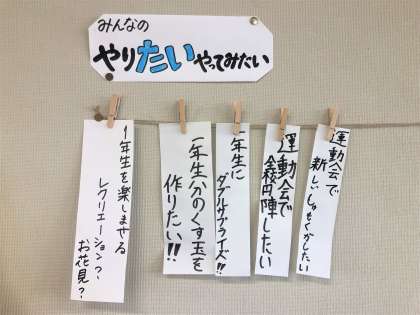 みんなの
やりたいやってみたい
運動会で
新しいしゅもくがしたい
運動会で
全校円陣したい
一年生に
ダブルサプライズ!!
一年生分のくす玉を
作りたい!!
1年生を楽しませる
レクリエーション?
お花見?